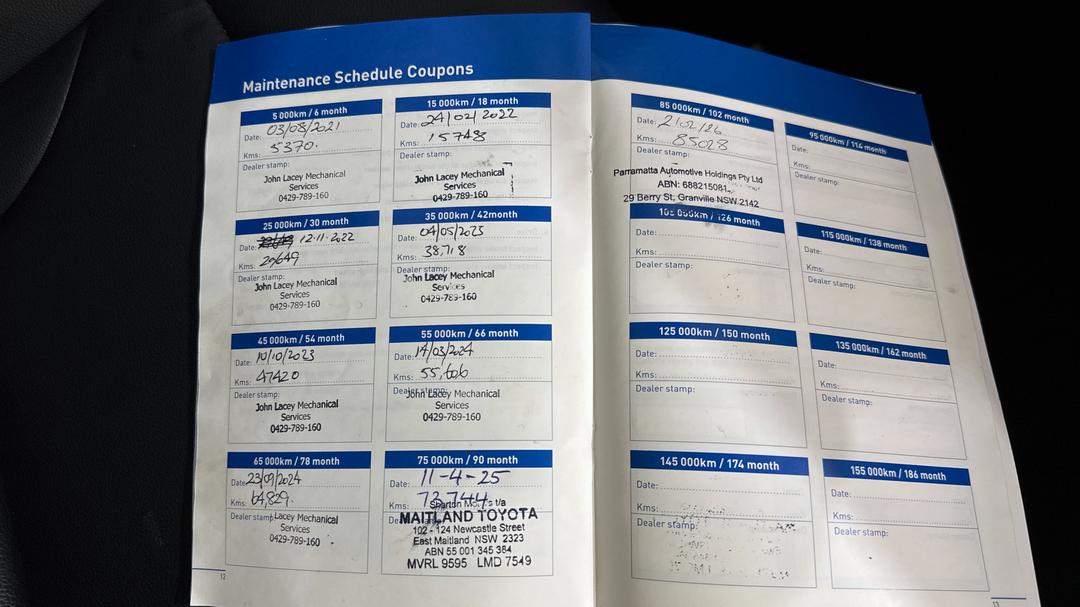 Maintenance Schedule Coupons
5 000km / 6 month
Date: 03/08/2021
Kms: 5370.
Dealer stamp:
John Lacey Mechanical
Services
0429-789-160
15 000km / 18 month
Date: 24/02/2022
Kms: 15748
Dealer stamp:
John Lacey Mechanical
Services
0429-789-160
25 000km / 30 month
Date: 12.11.2022
Kms: 29649
Dealer stamp:
John Lacey Mechanical
Services
0429-789-160
35 000km / 42month
Date: 04/05/2023
Kms: 38,718
Dealer stamp:
John Lacey Mechanical
Services
0429-789-160
45 000km / 54 month
Date: 10/10/2023
Kms: 47420
Dealer stamp:
John Lacey Mechanical
Services
0429-789-160
55 000km / 66 month
Date: 14/03/2024
Kms: 55,606
Dealer stamp:
John Lacey Mechanical
Services
0429-789-160
65 000km / 78 month
Date: 23/09/2024
Kms: 64,829.
Dealer stamp:
Lacey Mechanical
Services
0429-789-160
75 000km / 90 month
Date: 11-4-25
Kms: 73,744
t/a
MAITLAND TOYOTA
102 - 124 Newcastle Street
East Maitland NSW 2323
ABN 55 001 345 384
MVRL 9595 LMD 7549
12
85 000km / 102 month
Date: 2/02/26
Kms: 85028
Dealer stamp:
Parramatta Automotive Holdings Pty Ltd
ABN: 688215081
29 Berry St, Granville NSW 2142
95 000km / 114 month
Date:
Kms:
Dealer stamp:
105 000km / 126 month
Date:
Kms:
Dealer stamp:
115 000km / 138 month
Date:
Kms:
Dealer stamp:
125 000km / 150 month
Date:
Kms:
Dealer stamp:
135 000km / 162 month
Date:
Kms:
Dealer stamp:
145 000km / 174 month
Date:
Kms:
Dealer stamp:
155 000km / 186 month
Date:
Kms:
Dealer stamp:
13